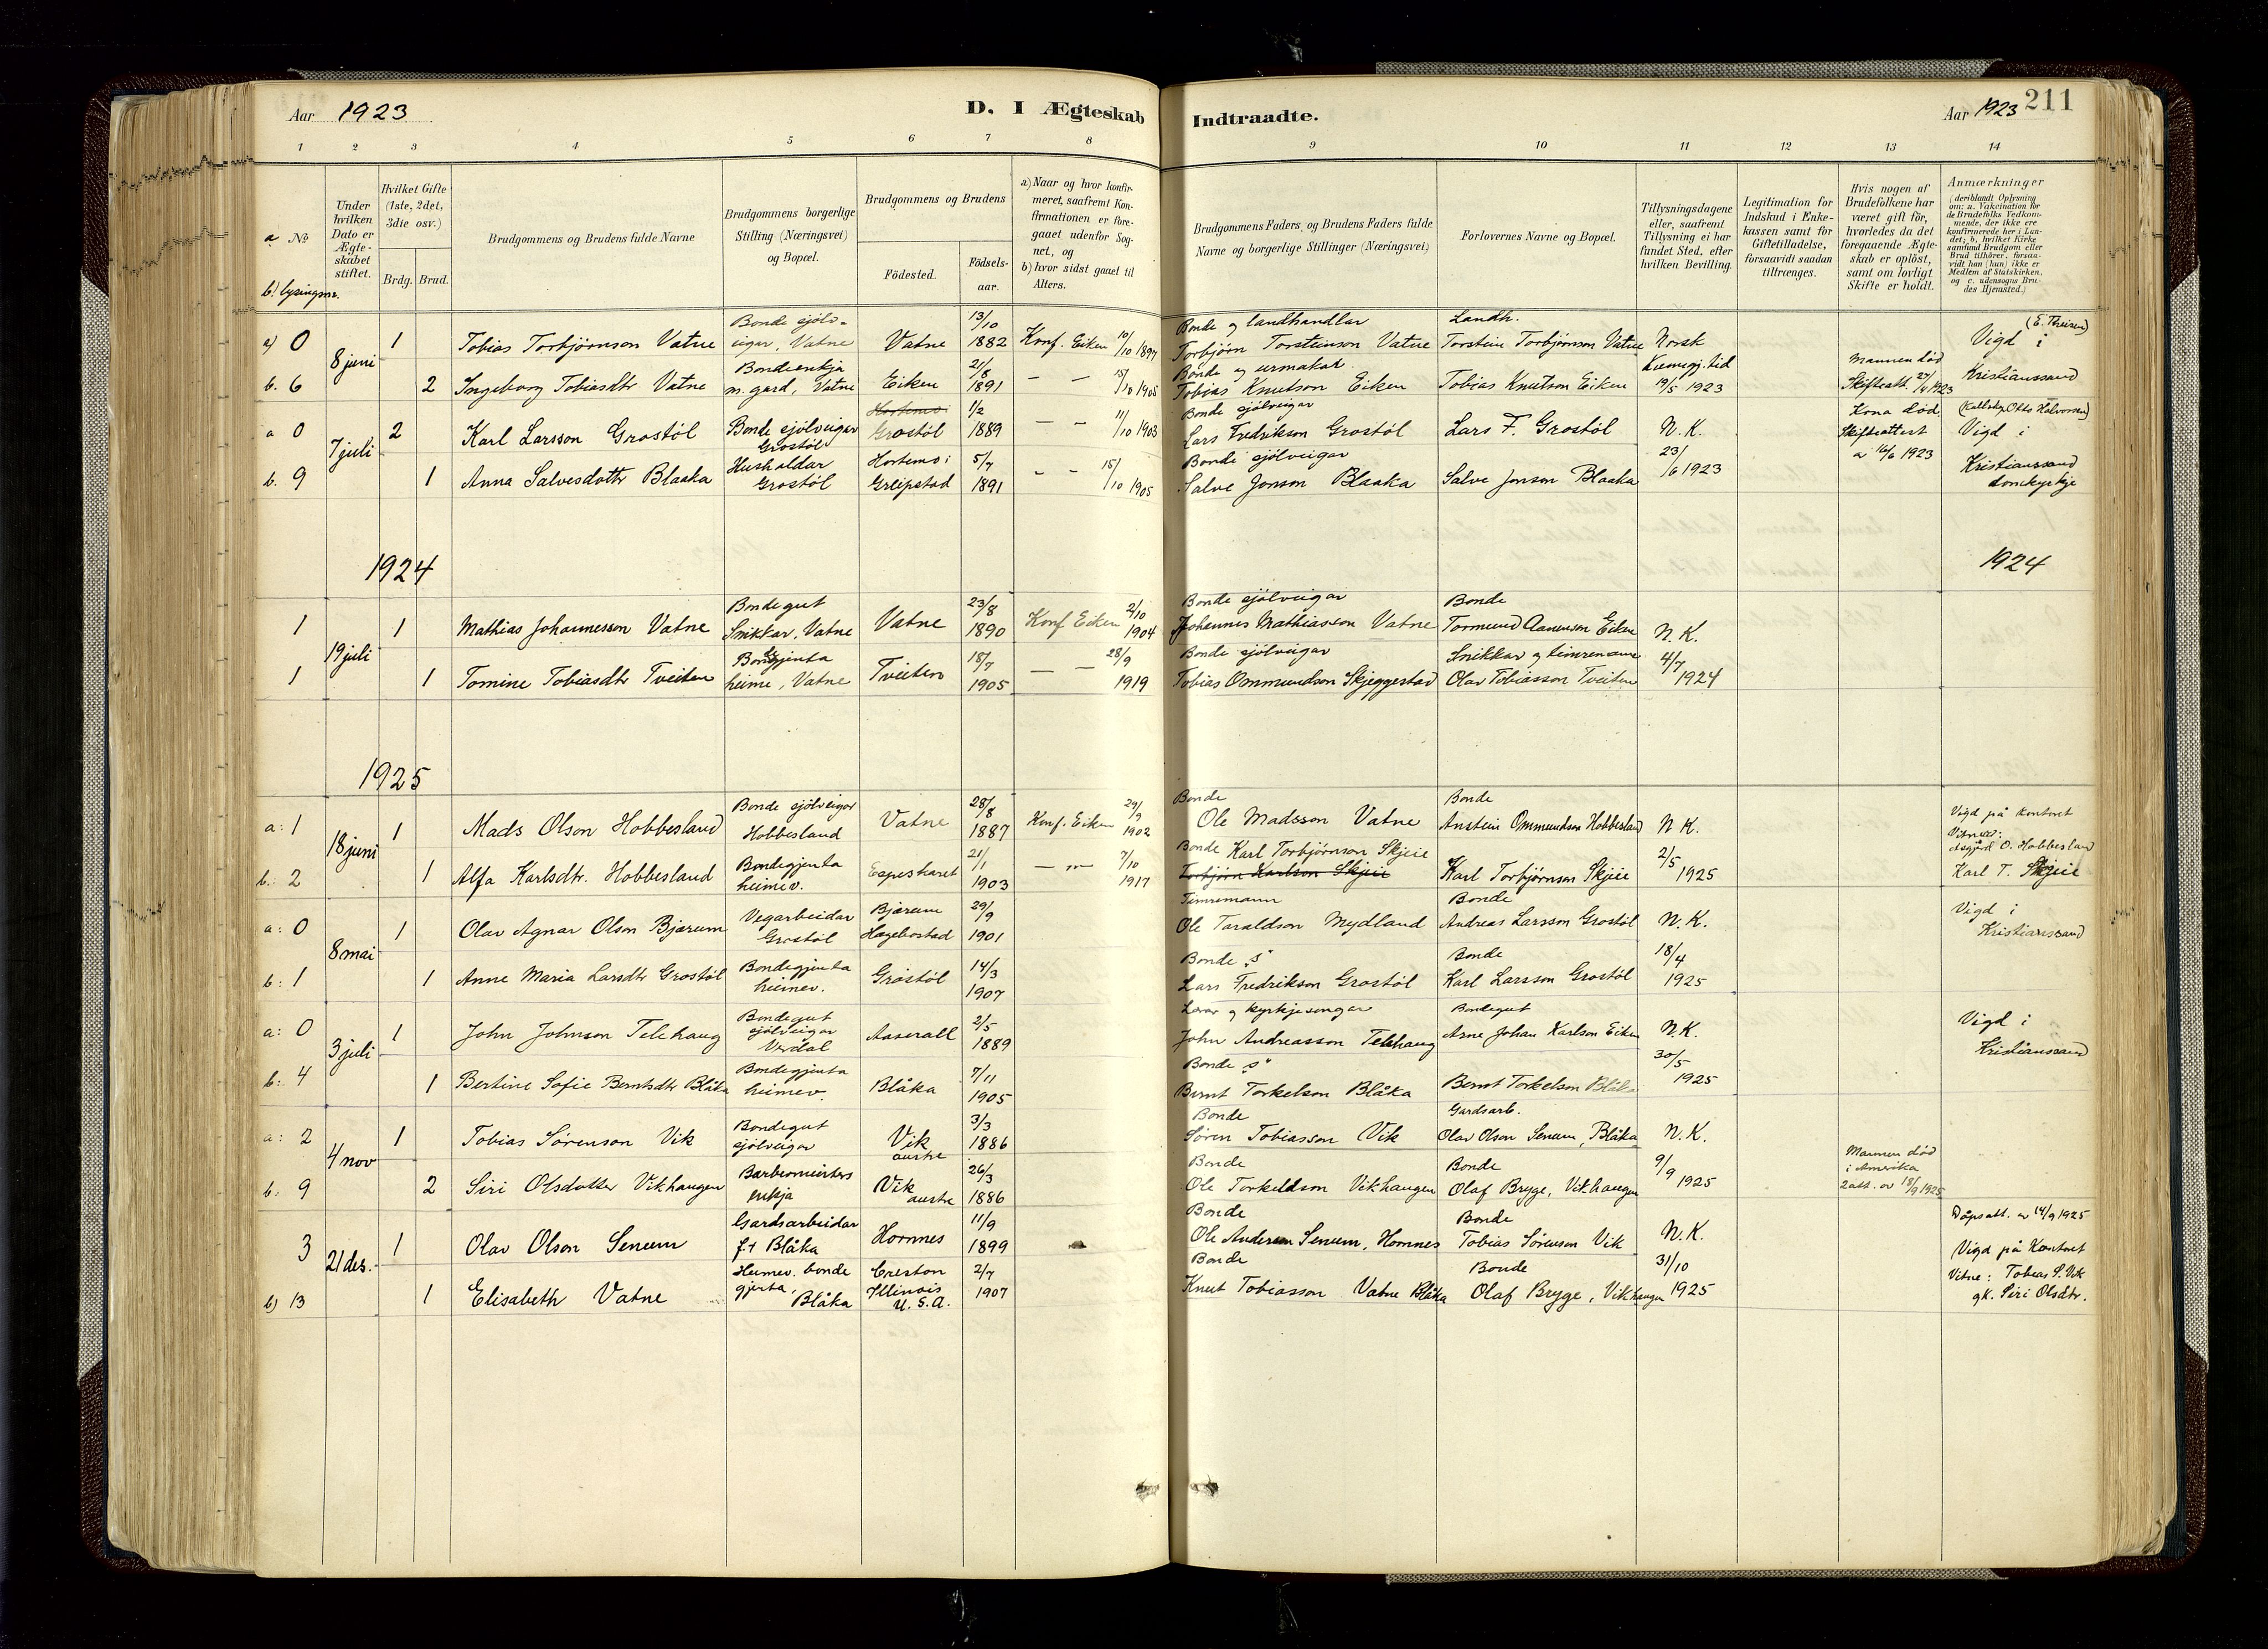 Aar 1923
D. I Ægteskab
Indtraadte.
Aar 1923
211
1 2 3 4 5 6 7 8 9 10 11 12 13 14
a No
b. lysingsnr.
Under hvilken Dato er Ægteskabet stiftet.
Hvilket Gifte (1ste, 2det, 3die osv.)
Brdg. Brud.
Brudgommens og Brudens fulde Navne
Brudgommens borgerlige Stilling (Næringsvei) og Bopæl.
Brudgommens og Brudens
Födested.
Födsels-aar.
a) Naar og hvor konfirmeret, saafremt Konfirmationen er foregaaet udenfor Sognet, og
b) hvor sidst gaaet til Alters.
Brudgommens Faders og Brudens Faders fulde Navne og borgerlige Stillinger (Næringsvei)
Forlovernes Navne og Bopæl.
Tillysningsdagene eller, saafremt Tillysning ei har fundet Sted, efter hvilken Bevilling.
Legitimation for Indskud i Enkekassen samt for Giftetilladelse, forsaavidt saadan tiltrænges.
Hvis nogen af Brudefolkene har været gift för, hvorledes da det foregaaende Ægteskab er oplöst, samt om lovligt Skifte er holdt.
Anmærkninger (deriblandt Oplysning om: a. Vakcination for de Brudefolks Vedkommende, der ikke ere konfirmerede her i Landet; b. hvilket Kirkesamfund Brudgom eller Brud tilhörer, forsaavidt han (hun) ikke er Medlem af Statskirken, og c. udensogns Brudes Hjemsted.)
a) 0 8 juni 1 Tobias Torbjörnson Vatne Bonde sjölveigar, Vatne Vatne 13/10 1882 Konf. Eiken 10/10 1897 Bonde og landhandlar Torbjörn Torsteinson Vatne Landh. Torstein Torbjörnson Vatne Norsk Vigd i
b. 6 2 Ingeborg Tobiasdtr Vatne Bondeenkja m. gard, Vatne Eiken 21/8 1891 — — 15/10 1905 Bonde og urmakar Tobias Knutson Eiken Tobias Knutson Eiken Kunngj. tid 19/5 1923 Mannen död Skifteatt. Kristianssand
a 0 7 juli 2 Karl Larsson Grostöl Bonde sjölveigar Grostöl Grostöl 1/2 1889 — — 11/10 1903 Bonde sjölveigar Lars Fredrikson Grostöl Lars F. Grostöl N. K. Kona död Skifteattest av 16/6 1923 Vigd i
b. 9 1 Anna Salvesdottr Blaaka Hushaldar Grostöl Hortemo i Greipstad 5/7 1891 — — 15/10 1905 Bonde sjölveigar Salve Jonson Blaaka Salve Jonson Blaaka 23/6 1923 Kristianssand domkyrkje
1924
1924
1 19 juli 1 Mathias Johannesson Vatne Bondegut Snikkar, Vatne Vatne 23/8 1890 Konf Eiken 2/10 1904 Bonde sjölveigar Johannes Mathiasson Vatne Bonde Tormund Aanenson Eiken N. K.
1 1 Tomine Tobiasdtr Tveiten Bondegjenta heime, Vatne Tveiten 18/7 1905 — — 28/9 1919 Bonde sjölveigar Tobias Ommundson Skjeggestad Snikkar og timremann Olav Tobiasson Tveiten 4/7 1924
1925
a: 1 18 juni 1 Mads Olson Hobbesland Bonde sjölveigar Hobbesland Vatne 28/8 1887 Konf. Eiken 1902 Bonde Ole Madsson Vatne Bonde Anstein Ommundson Hobbesland N K. Vigd på kontoret
b: 2 1 Alfa Karlsdtr. Hobbesland Bondegjenta heimev. 21/1 1903 — " — 7/10 1917 Bonde Karl Torbjörnson Skjeie Torbjörn Karlson Skjeie Karl Torbjörnson Skjeie 2/5 1925 Karl T. Skjeie
a: 0 8 mai 1 Olav Agnar Olson Bjærum Vegarbeidar Grostöl Bjærum Hægebostad 29/9 1901 Timremann Ole Taraldson Mydland Bonde Andreas Larsson Grostöl N. K. Vigd i
b: 1 1 Anne Maria Larsdtr Grostöl Bondegjenta heimev. Grostöl 14/3 1907 Bonde „s" Lars Fredrikson Grostöl Bonde Karl Larsson Grostöl 18/4 1925 Kristianssand
a: 0 3 juli 1 John Johnson Telehaug Bondegut sjölveigar Aaserall 2/5 1889 Lærar og kyrkjesongar John Andreasson Telehaug Bondegut Arne Johan Karlson Eiken N. K. Vigd i
b: 4 1 Bertine Sofie Berntsdtr Blåka Bondegjenta heimev. Blåka 7/11 1905 Bonde „s" Bernt Torkelson Blåka Bernt Torkelson Blåka 30/5 1925 Kristianssand
a: 2 4 nov 1 Tobias Sörenson Vik Bondegut sjölveigar Vik austre 3/3 1886 Bonde Sören Tobiasson Vik Gardsarb. Olav Olson Senum, Blåka N. K.
b: 9 2 Siri Olsdotter Vikhaugen Barbermeisters enkja Vik austre 26/3 1886 Bonde Ole Torkeldson Vikhaugen Bonde Olaf Brygge, Vikhaugen 9/9 1925 Mannen död i Amerika att. av 18/9 1925
3 21 des. 1 Olav Olson Senum Gardsarbeidar f.t Blåka Hornnes 11/9 1899 Bonde Ole Anderssen Senum, Hornnes Bonde Tobias Sörenson Vik N. K. Dåpsatt. av 14/9 1925 Vigd på Kontoret
b) 13 1 Elisabeth Vatne Heimev. bondegjenta, Blåka Creston Illinois U. S. A. 2/7 1907 Bonde Knut Tobiasson Vatne Blåka Bonde Olaf Brygge, Vikhaugen 31/10 1925 Vitne: Tobias S. Vik gk. Siri Olsdtr.